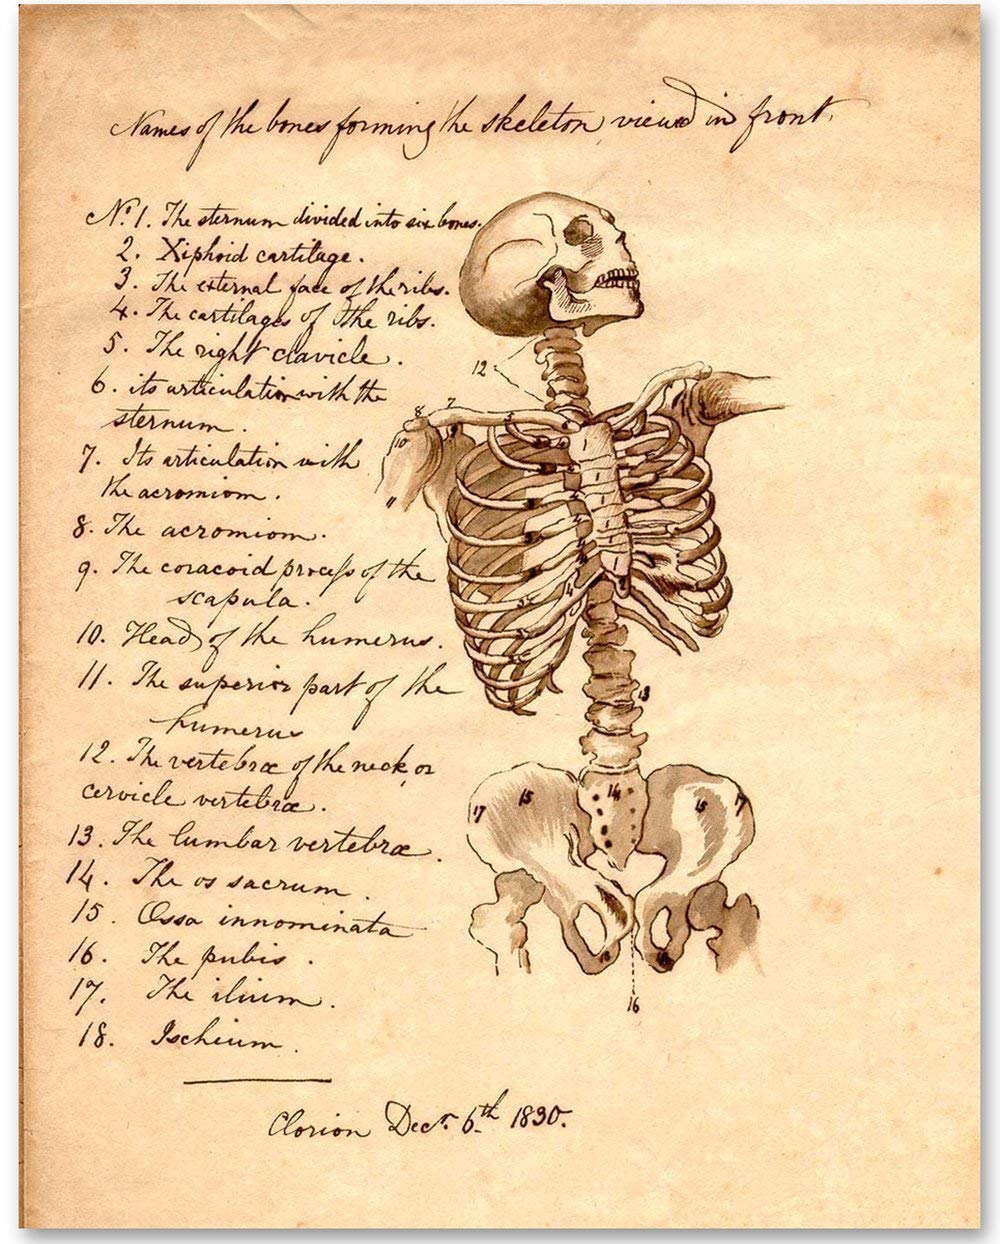 Names of the bones forming the skeleton, viewed in front.
No. 1. The sternum divided into six bones.
2. Xiphoid cartilage.
3. The external face of the ribs.
4. The cartilages of the ribs.
5. The right clavicle.
6. its articulation with the
sternum.
7. Its articulation with
the acromiom.
8. The acromiom.
9. The coracoid process of the
scapula.
10. Head of the humerus.
11. The superior part of the
humerus
12. The vertebræ of the neck, or
cervicle vertebræ.
13. The lumbar vertebræ.
14. The os sacrum.
15. Ossa innominata
16. The pubis.
17. The ilium.
18. Ischium.
Clorion Decr. 6th 1830.
12
8 7 5
10 9 1
11
13
17 15 14 15 17
18 18
16